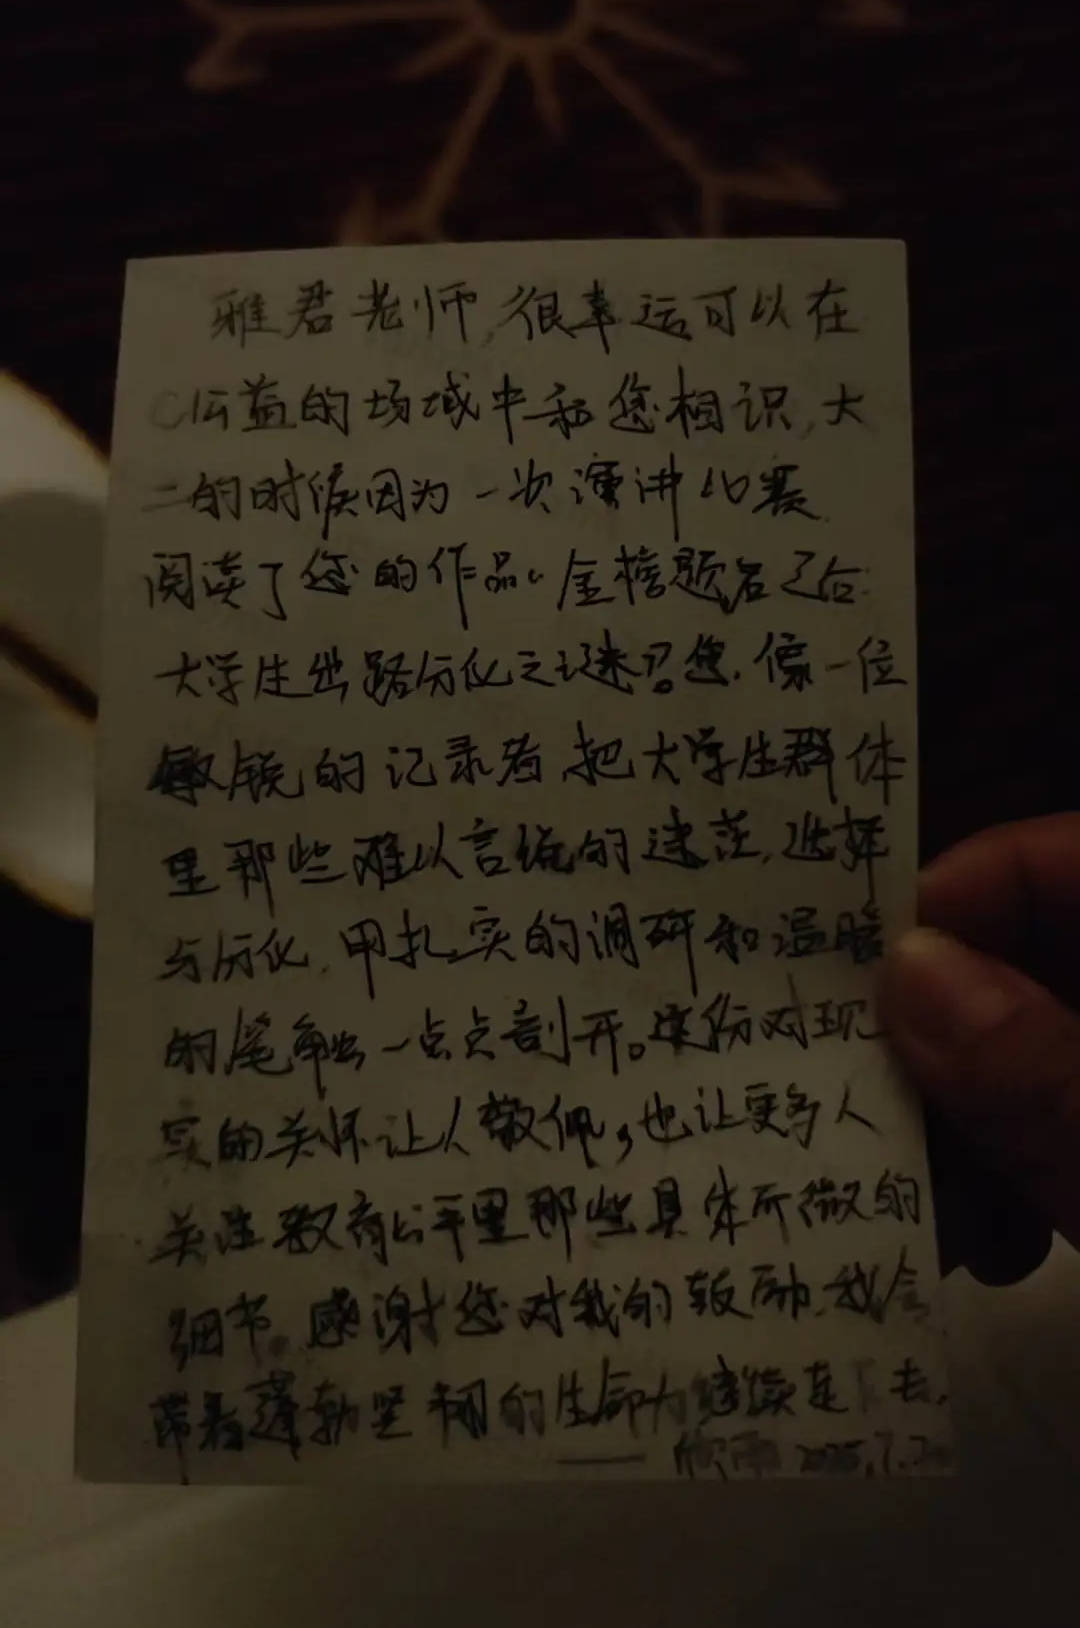 雅君老师,很幸运可以在
公益的场域中和您相识,大
二的时候因为一次演讲比赛
阅读了您的作品《金榜题名之后:
大学生出路分化之谜》。您像一位
敏锐的记录者,把大学生群体
里那些难以言说的迷茫,选择
与分化,用扎实的调研和温暖
的笔触一点点剖开。这份对现
实的关怀让人敬佩,也让更多人
关注教育公平里那些具体所微的
细节。感谢您对我的鼓励,我会
带着蓬勃坚韧的生命力继续走下去,
—— 欣雨 2025.7.